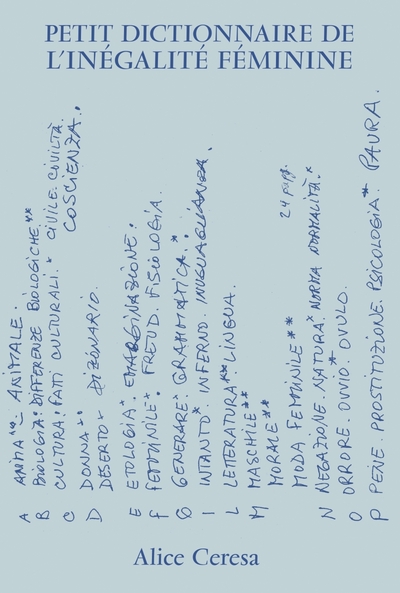 PETIT DICTIONNAIRE DE
L'INÉGALITÉ FÉMININE
A ANIMA** ANIMALE.
B BIOLOGIA* DIFFERENZE BIOLOGICHE**
C CULTURA* FATI CULTURALI.* CIVILE. CIVILTÀ.
COSCIENZA.
D DONNA**
DESERTO* DIZIONARIO.
E ETOLOGIA* EMARGINAZIONE.
F FEMMINILE* FREUD. FISIOLOGIA.
G GENERARE* GRAMMATICA.*
I INTANTO* INFERNO. INUGUAGLIANZA.
L LETTERATURA** LINGUA.
M MASCHILE**
MORALE**
MODA FEMMINILE** 24 pagg.
N NEGAZIONE. NATURA* NORMA NORMALITÀ.*
O ORRORE. OVVIO* OVULO.
P PENE. PROSTITUZIONE. PSICOLOGIA* PAURA.
Alice Ceresa